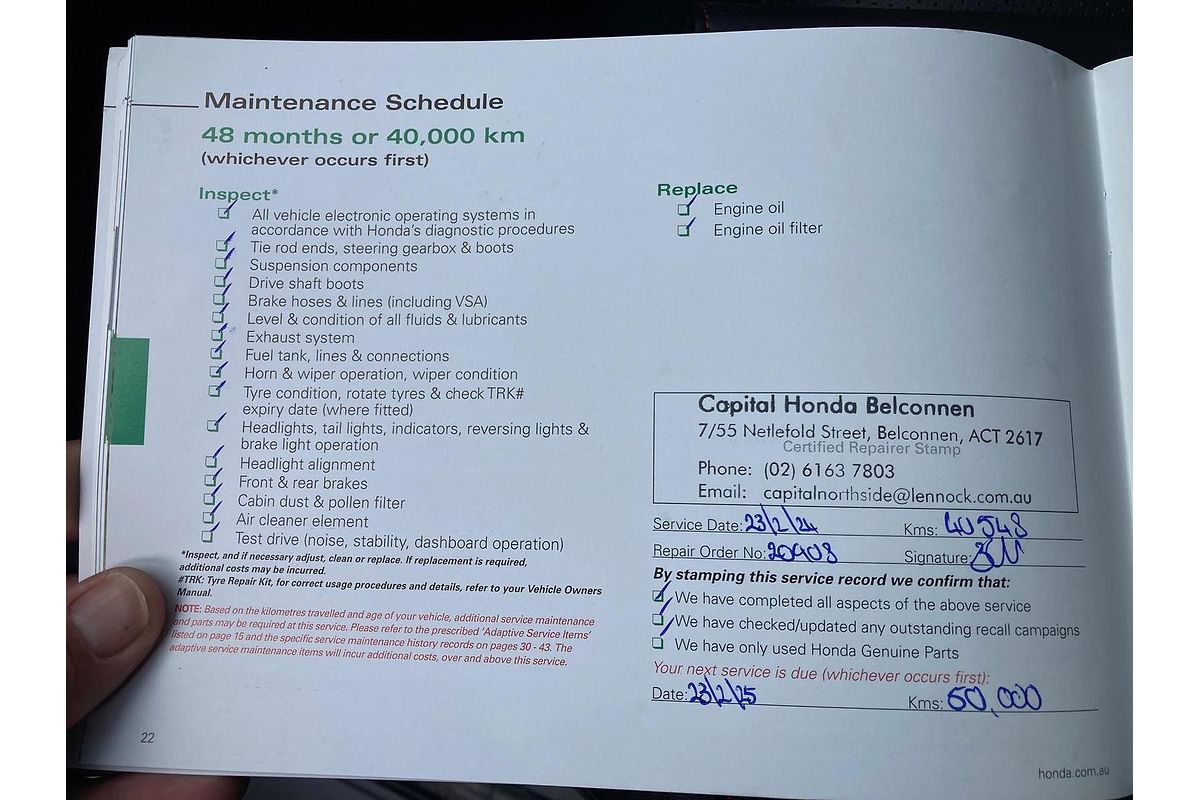 Maintenance Schedule
48 months or 40,000 km
(whichever occurs first)
Inspect*
All vehicle electronic operating systems in
accordance with Honda's diagnostic procedures
Tie rod ends, steering gearbox & boots
Suspension components
Drive shaft boots
Brake hoses & lines (including VSA)
Level & condition of all fluids & lubricants
Exhaust system
Fuel tank, lines & connections
Horn & wiper operation, wiper condition
Tyre condition, rotate tyres & check TRK#
expiry date (where fitted)
Headlights, tail lights, indicators, reversing lights &
brake light operation
Headlight alignment
Front & rear brakes
Cabin dust & pollen filter
Air cleaner element
Test drive (noise, stability, dashboard operation)
*Inspect, and if necessary adjust, clean or replace. If replacement is required,
additional costs may be incurred.
#TRK: Tyre Repair Kit, for correct usage procedures and details, refer to your Vehicle Owners
Manual.
NOTE: Based on the kilometres travelled and age of your vehicle, additional service maintenance
and parts may be required at this service. Please refer to the prescribed 'Adaptive Service Items'
listed on page 15 and the specific service maintenance history records on pages 30 - 43. The
adaptive service maintenance items will incur additional costs, over and above this service.
22
Replace
Engine oil
Engine oil filter
Capital Honda Belconnen
7/55 Netlefold Street, Belconnen, ACT 2617
Certified Repairer Stamp
Phone: (02) 6163 7803
Email: capitalnorthside@lennock.com.au
Service Date: 23/2/24 Kms: 40548
Repair Order No: 20908 Signature:
By stamping this service record we confirm that:
We have completed all aspects of the above service
We have checked/updated any outstanding recall campaigns
We have only used Honda Genuine Parts
Your next service is due (whichever occurs first):
Date: 23/2/25 Kms: 50,000
honda.com.au